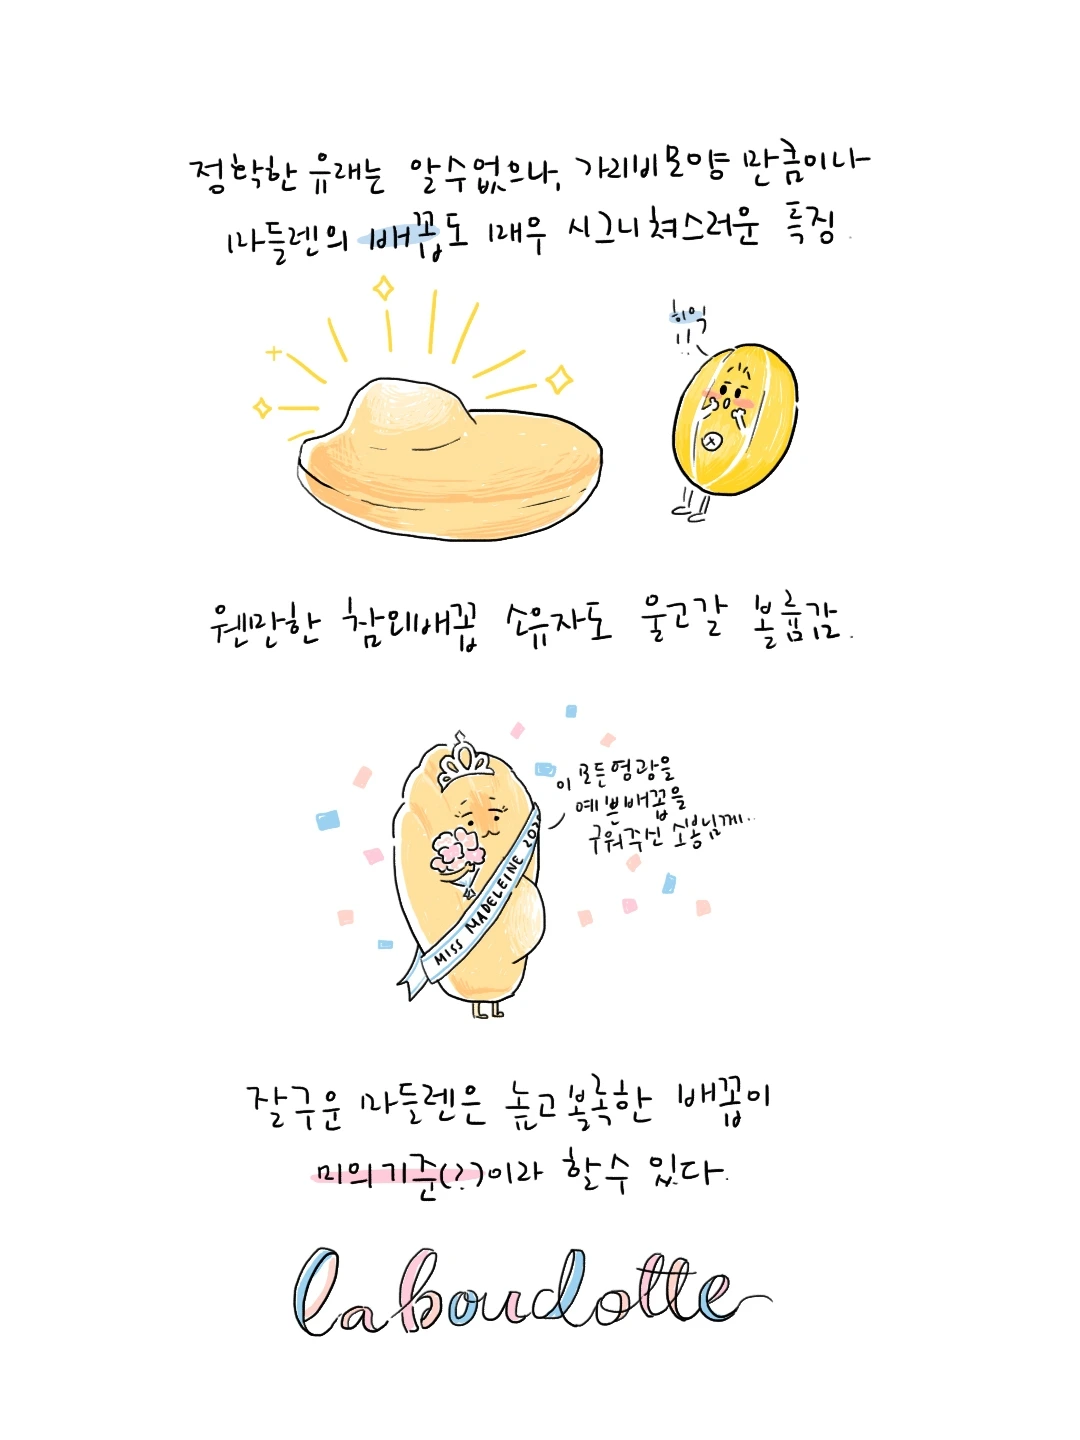 정확한 유래는 알수없으나, 가리비모양 만큼이나
마들렌의 배꼽도 매우 시그니쳐스러운 특징.
히익
!!
웬만한 참외배꼽 소유자도 울고갈 볼륨감.
이 모든영광을
예쁜배꼽을
구워주신 소봉님께..
MISS MADELEINE 202
잘구운 마들렌은 높고볼록한 배꼽이
미의기준(?)이라 할수 있다.
la boudotte